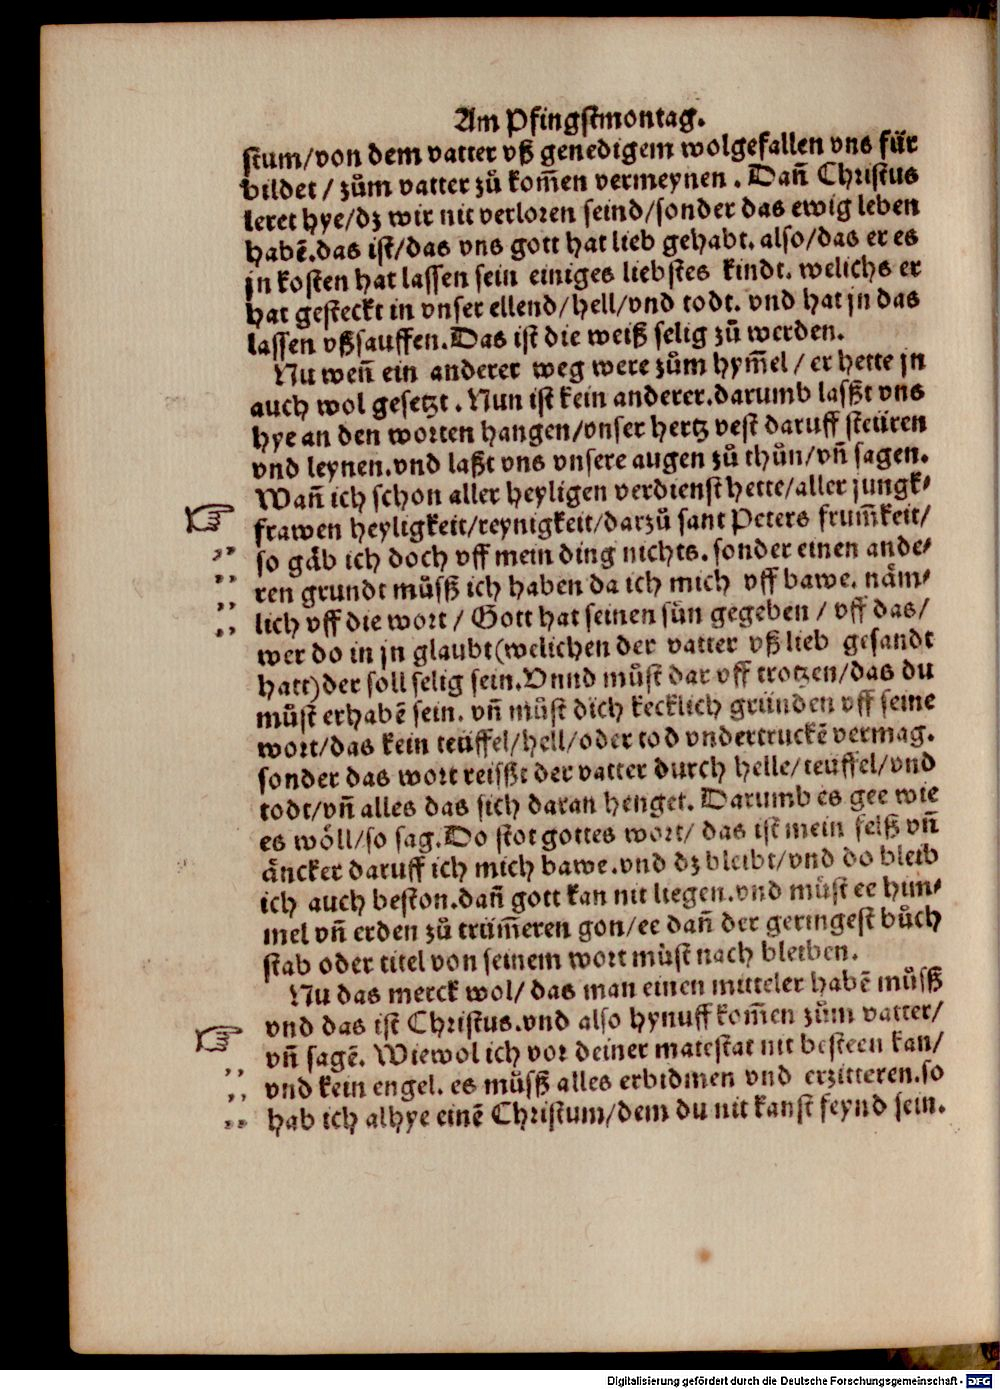 Am Pfingstmontag.
stum/von dem vatter vß genedigem wolgefallen vns für
bildet / zům vatter zů kom̃en vermeynen . Dañ Christus
leret hye/dz wir nit verloren seind/sonder das ewig leben
habẽ.das ist/das vns gott hat lieb gehabt. also/das er es
jn kosten hat lassen sein einiges liebstes kindt. welichs er
hat gesteckt in vnser ellend/hell/vnd todt. vnd hat jn das
lassen vßsauffen.Das ist die weiß selig zů werden.
Nu weñ ein anderer weg were zům hym̃el / er hette jn
auch wol gesetzt . Nun ist kein anderer.darumb lasßt vns
hye an den worten hangen/vnser hertz vest daruff steüren
vnd leynen.vnd laßt vns vnsere augen zů thůn/vñ sagen.
Wañ ich schon aller heyligen verdienst hette/aller jungk⸗
frawen heyligkeit/reynigkeit/darzů sant Peters frum̃keit/
so gåb ich doch vff mein ding nichts. sonder einen ande⸗
ren grundt můsß ich haben da ich mich vff bawe. nåm⸗
lich vff die wort / Gott hat seinen sůn gegeben / vff das/
wer do in jn glaubt(welichen der vatter vß lieb gesandt
hatt)der soll selig sein.Vnnd můst dar vff trotzen/das du
můst erhabẽ sein. vñ můst dich kecklich gründen vff seine
wort/das kein teüffel/hell/oder tod vndertruckẽ vermag.
sonder das wort reisßt der vatter durch helle/teüffel/vnd
todt/vñ alles das sich daran henget. Darumb es gee wie
es wöll/so sag.Do stot gottes wort/ das ist mein felß vñ
åncker daruff ich mich bawe.vnd dz bleibt/vnd do bleib
ich auch beston.dañ gott kan nit liegen.vnd můst ee him⸗
mel vñ erden zů trům̃eren gon/ee dañ der geringest bůch
stab oder titel von seinem wort můst nach bleiben.
Nu das merck wol/ das man einen mitteler habẽ můsß
vnd das ist Christus.vnd also hynuff kom̃en zům vatter/
vñ sagẽ. Wiewol ich vor deiner maiestat nit besteen kan/
vnd kein engel. es můsß alles erbidmen vnd erzitteren.so
hab ich alhye einẽ Christum/dem du nit kanst feynd sein.
Digitalisierung gefördert durch die Deutsche Forschungsgemeinschaft - DFG